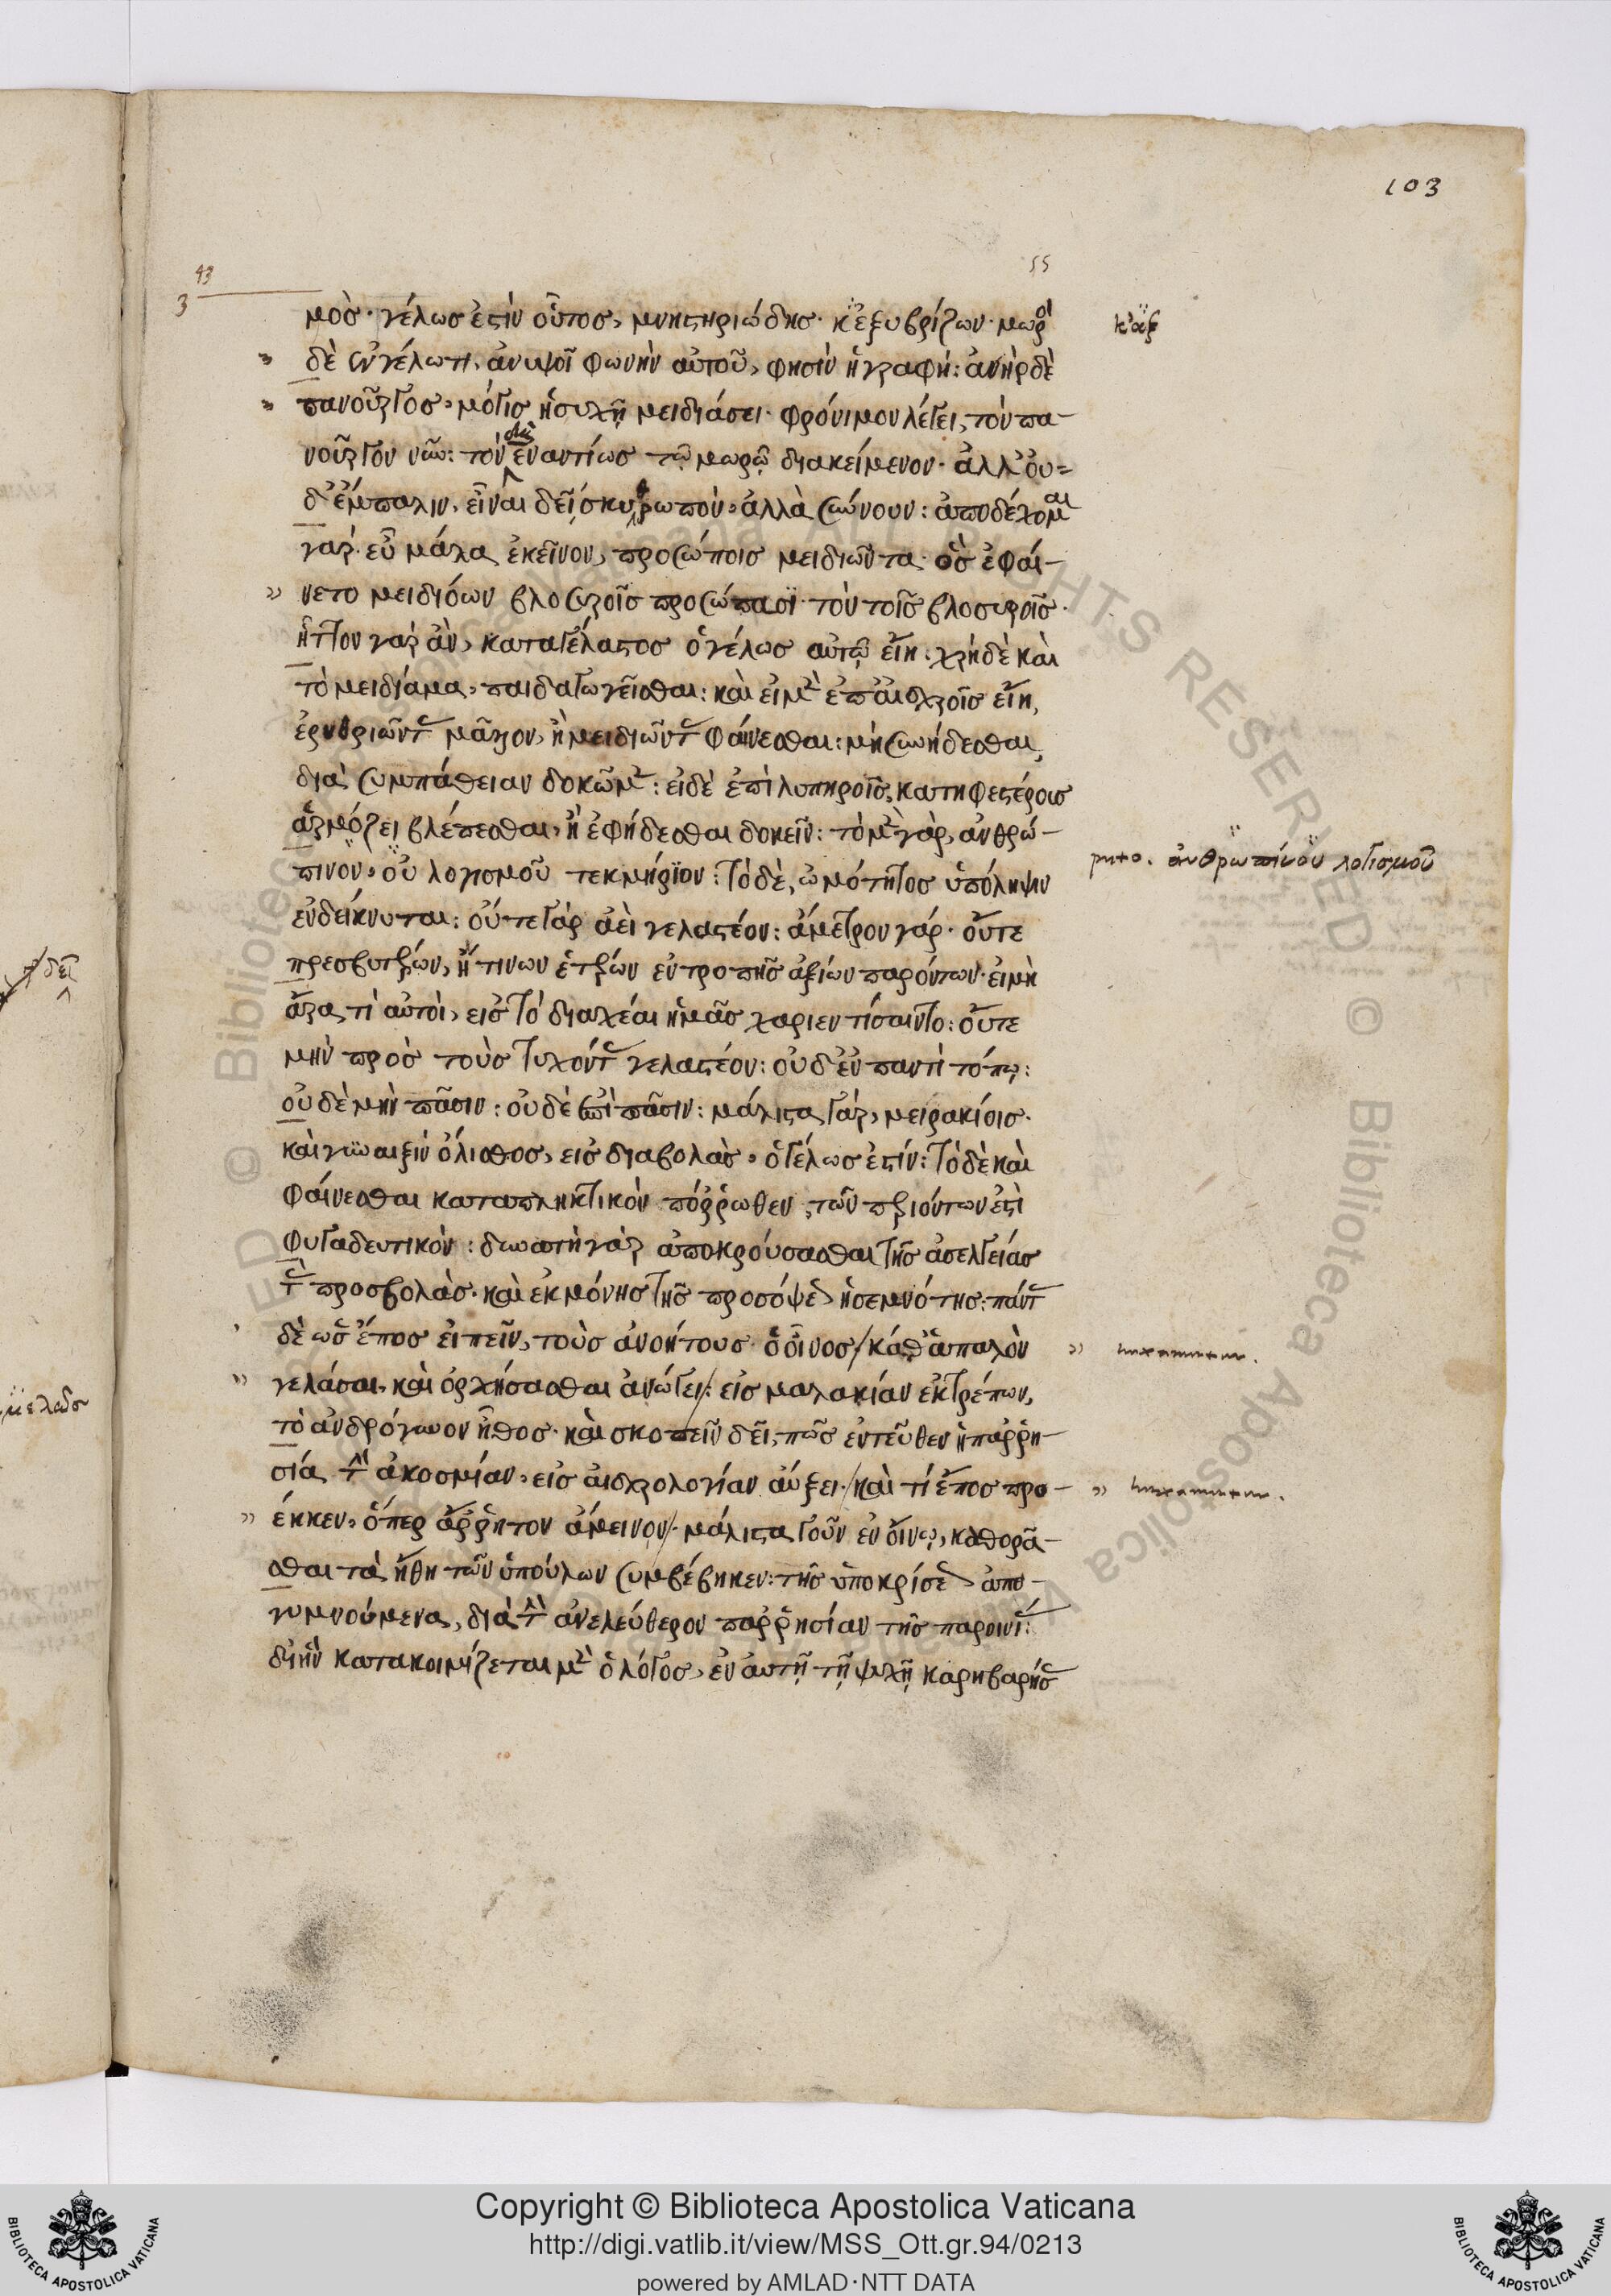 103
93
3
55
μὸσ· γέλωσ ἐστὶν οὗτοσ, μνηστηριώδησ· κἐξυβρίζων· μωρὸσ
κἀξ
δὲ ἐν γέλωτι, ἀνυψοῖ φωνὴν αὐτοῦ, φησὶν ἡ γραφή: ἀνὴρ δὲ
πανοῦργοσ, μόγισ ἡσυχῆ μειδιάσει· φρόνιμον λέγει, τὸν πα-
νοῦργον νῦν: τὸν ἐναντίωσ τῷ μωρῷ διακείμενον· ἀλλ' οὐ-
δ' ἔμπαλιν, εἶναι δεῖ σκυθρωπὸν, ἀλλὰ σύννουν: ἀποδέχομαι
γὰρ εὖ μάλα ἐκεῖνον, προσώποισ μειδιῶντα· ὃσ ἐφαί-
νετο μειδιόων βλοσυροῖσ προσώπασι· τὸν τοῖσ βλοσυροῖσ·
ἧττον γὰρ ἂν, καταγέλαστοσ ὁ γέλωσ αὐτῷ εἴη· χρὴ δὲ καὶ
τὸ μειδίαμα, παιδαγωγεῖσθαι: καὶ εἰ μὲν ἐπ' αἰσχροῖσ εἴη,
ἐρυθριῶντασ μᾶλλον, ἢ μειδιῶντασ φαίνεσθαι: μὴ συνήδεσθαι
διὰ συμπάθειαν δοκῶμεν: εἰ δὲ ἐπὶ λυπηροῖσ, κατηφεστέροισ
ἁρμόζει βλέπεσθαι, ἢ ἐφήδεσθαι δοκεῖν: τὸ μὲν γὰρ, ἀνθρώ-
πινον, οὐ λογισμοῦ τεκμήριον: τὸ δὲ, ὠμότητοσ ὑπόληψιν
ρητο. ἀνθρωπίνου λογισμοῦ
ἐνδείκνυται: οὔτε γὰρ ἀεὶ γελαστέον: ἄμετρον γάρ· οὔτε
πρεσβυτέρων, ἤ τινων ἑτέρων ἐντροπῆσ ἀξίων παρόντων· εἰ μὴ
ἄρα τὶ αὐτοὶ, εἰσ τὸ διαχέαι ἡμᾶσ χαριεντίσαιντο: οὔτε
μὴν πρὸσ τοὺσ τυχόντασ γελαστέον: οὐδ' ἐν παντὶ τόπῳ:
οὐδὲ μὴν πᾶσιν: οὐδὲ ἐπὶ πᾶσιν: μάλιστα γὰρ, μειρακίοισ·
καὶ γυναιξὶν ὄλισθοσ, εἰσ διαβολὰσ, ὁ γέλωσ ἐστίν: τὸ δὲ καὶ
φαίνεσθαι καταπληκτικὸν πόρρωθεν, τῶν περιόντων ἐστὶ
φυγαδευτικὸν: δυνατὴ γὰρ ἀποκρούσασθαι τῆσ ἀσελγείασ
τὰσ προσβολὰσ· καὶ ἐκ μόνησ τῆσ προσόψεωσ ἡ σεμνότησ: πάντασ
δὲ ὡσ ἔποσ εἰπεῖν, τοὺσ ἀνοήτουσ· ὁ οἶνοσ / κάθ' ἁπαλὸν
γελάσαι, καὶ ὀρχήσασθαι ἀνώγει /: εἰσ μαλακίαν ἐκτρέπων,
τὸ ἀνδρόγυνον ἦθοσ· καὶ σκοπεῖν δεῖ, πῶσ ἐντεῦθεν ἡ παρρη-
σία τὴν ἀκοσμίαν, εἰσ αἰσχρολογίαν αὔξει· / καὶ τί ἔποσ προ-
έηκεν, ὅπερ ἄρρητον ἄμεινον /· μάλιστα γοῦν ἐν οἴνῳ, καθορᾶ-
σθαι τὰ ἤθη τῶν ὑπούλων συμβέβηκεν: τῆσ ὑποκρίσεωσ ἀπο-
γυμνούμενα, διὰ τὴν ἀνελεύθερον παρρησίαν τῆσ παροινίασ:
δι' ἣν κατακοιμίζεται μὲν ὁ λόγοσ, ἐν αὐτῇ τῇ ψυχῇ καρηβαρήσασ
δεῖ
Copyright © Biblioteca Apostolica Vaticana
http://digi.vatlib.it/view/MSS_Ott.gr.94/0213
powered by AMLAD·NTT DATA
BIBLIOTECA APOSTOLICA VATICANA
BIBLIOTECA APOSTOLICA VATICANA